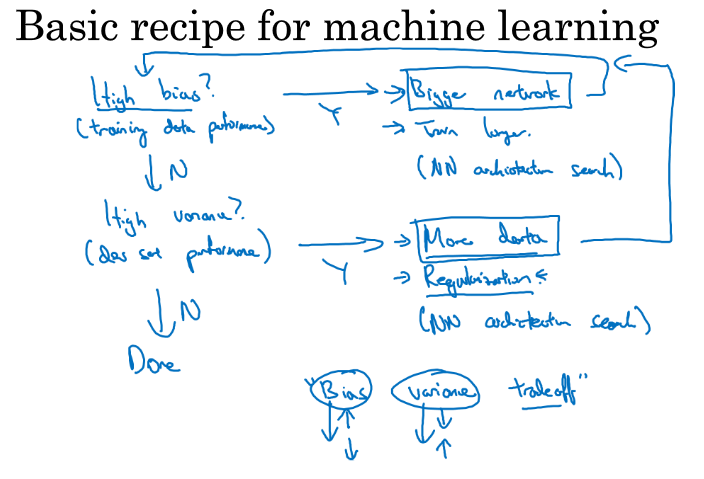 Basic recipe for machine learning
High bias?
(training data performance)
Y
→ Bigger network
→ Train longer.
(NN architecture search)
N
High variance?
(dev set performance)
Y
→ More data
→ Regularization
(NN architecture search)
N
Done
"Bias variance tradeoff"